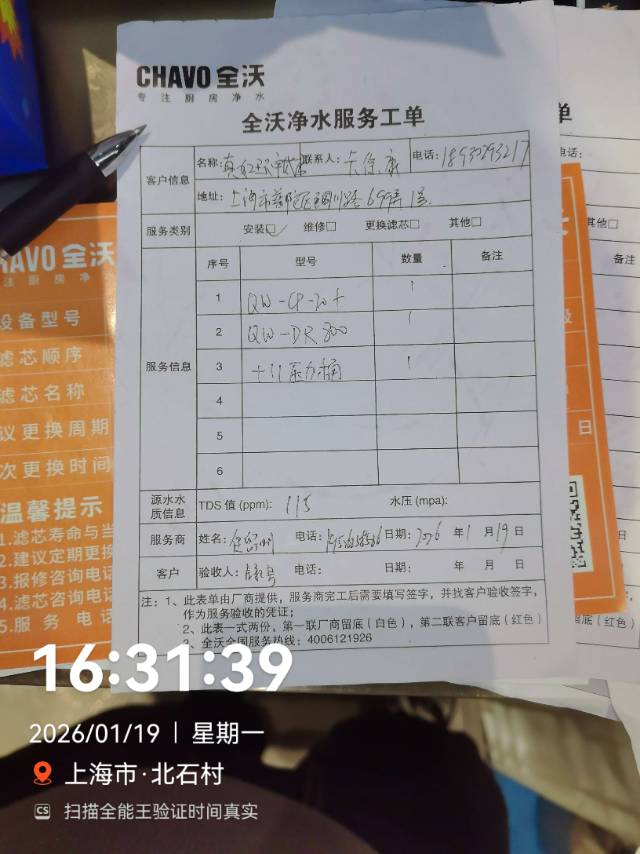 CHAVO 全沃
专注厨房净水
全沃净水服务工单
客户信息
名称:
联系人:
电话:
地址: 上海市 69弄1号
服务类别
安装☑ 维修□ 更换滤芯□ 其他□
服务信息
序号 型号 数量 备注
1 QW-CP-20+ 1
2 QW-DR800 1
3 +11压力桶 1
4
5
6
源水水质信息 TDS 值 (ppm): 115 水压 (mpa):
服务商 姓名: 电话: 日期: 2026 年 1 月 19 日
客户 验收人: 电话: 日期: 年 月 日
注:1、此表单由厂商提供，服务商完工后需要填写签字，并找客户验收签字，
作为服务验收的凭证;
2、此表一式两份，第一联厂商留底（白色），第二联客户留底（红色）
3、全沃全国服务热线: 4006121926
HAVO 全沃
注厨房净
设备型号
滤芯顺序
滤芯名称
议更换周期
次更换时间
温馨提示
1.滤芯寿命与当
2.建议定期更换
3.报修咨询电话
4.滤芯咨询电话
5.服务电话
单
其他□
备注
日
留底（红色）
16:31:39
2026/01/19 | 星期一
上海市·北石村
CS 扫描全能王验证时间真实